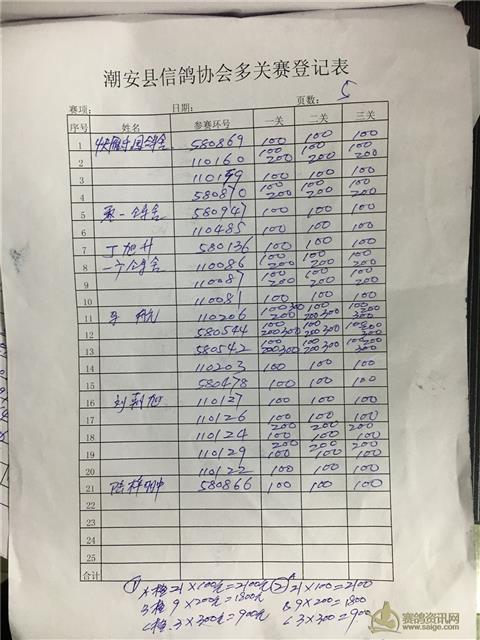 潮安县信鸽协会多关赛登记表
赛项: 日期: 页数: 5
序号 姓名 参赛环号 一关 二关 三关
1 580869 100 100 100
2 110160 100 200 100 200 100 200
3 110159 100 100 100
4 580870 100 200 100 200 100 200
5 第一鸽舍 580947 100 100 100
6 110485 100 100 100
7 丁旭升 580136 100 100 100
8 一个鸽舍 110086 100 200 100 200 100 200
9 110087 100 200 100 200 100 200
10 110081 100 100 100
11 110206 100 200 300 100 200 300 100 200 300
12 580544 100 200 300 100 200 300 100 200 300
13 580542 100 200 300 100 200 300 100 200 300
14 110203 100 100 100
15 580478 100 100 100
16 110127 100 100 100
17 110126 100 200 100 200 100 200
18 110124 100 200 100 200 100 200
19 110129 100 100 100
20 110122 100 100 100
21 580866 100 100 100
22
23
24
25
合计
① A检 21×100元=2100元 ② A 21×100=2100
B检 9×200元=1800元 B 9×200=1800
C检 3×300元=900元 C 3×300=900
赛鸽资讯网
www.saige.com